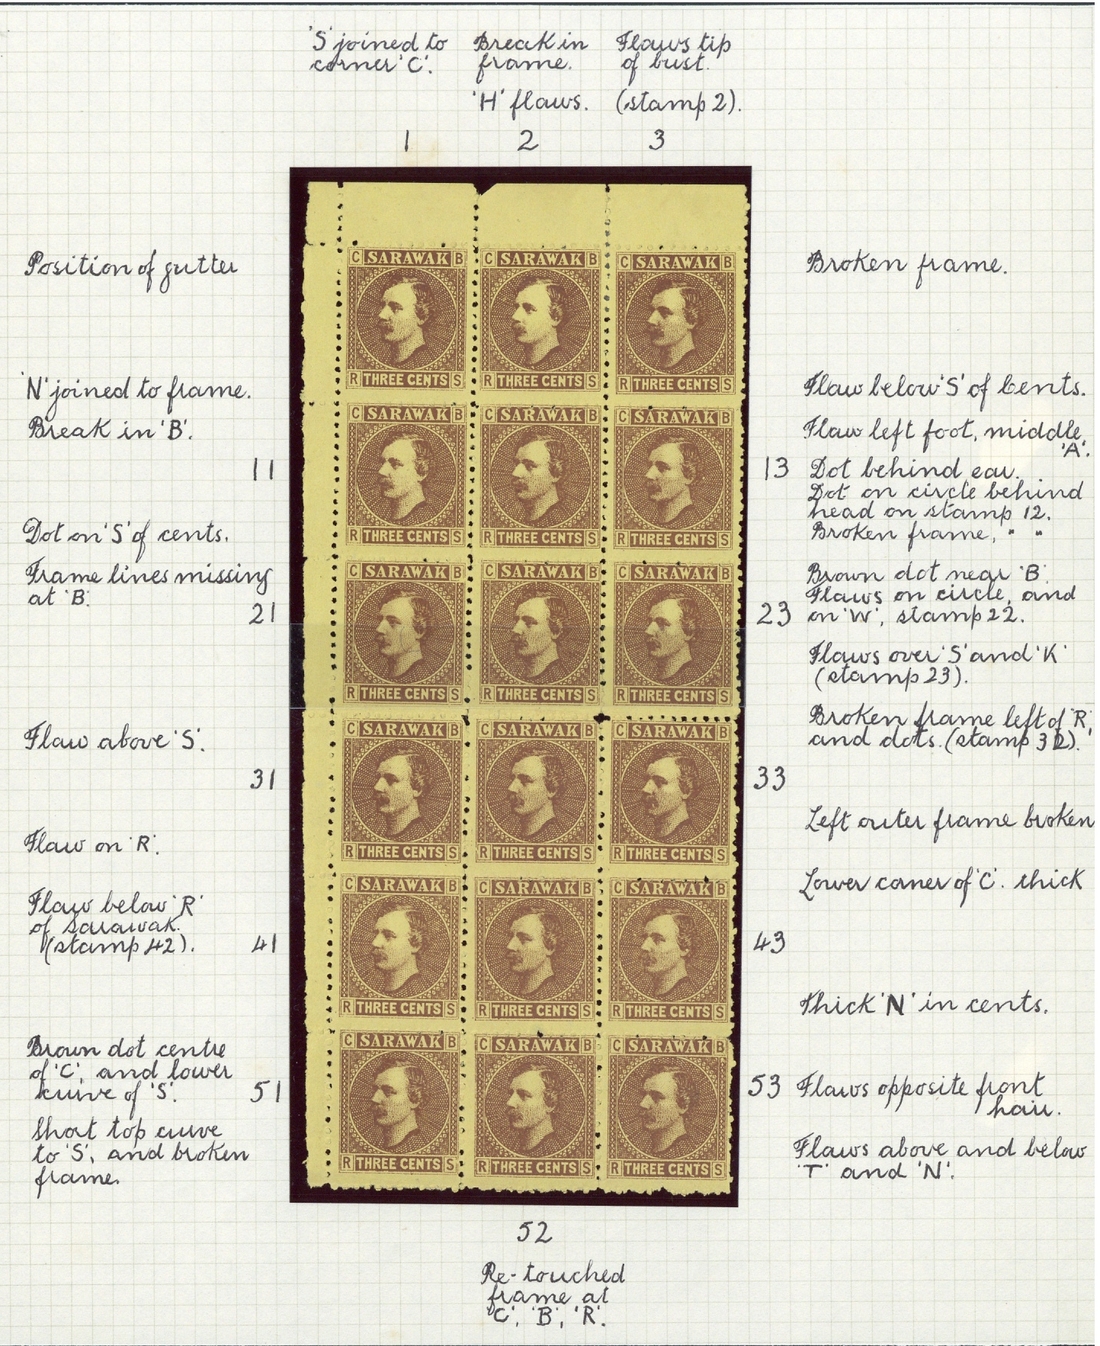 'S' joined to
corner 'C'.
Break in
frame.
'H' flaws.
Flaws tip
of bust.
(stamp 2).
1 2 3
Position of gutter
'N' joined to frame.
Break in 'B'.
11
Dot on 'S' of cents.
Frame lines missing
at 'B'.
21
Flaw above 'S'.
31
Flaw on 'R'.
Flaw below 'R'
of sarawak.
(stamp 42).
41
Brown dot centre
of 'C', and lower
curve of 'S'.
51
Short top curve
to 'S', and broken
frame.
C SARAWAK B C SARAWAK B C SARAWAK B
R THREE CENTS S R THREE CENTS S R THREE CENTS S
C SARAWAK B C SARAWAK B C SARAWAK B
R THREE CENTS S R THREE CENTS S R THREE CENTS S
C SARAWAK B C SARAWAK B C SARAWAK B
R THREE CENTS S R THREE CENTS S R THREE CENTS S
C SARAWAK B C SARAWAK B C SARAWAK B
R THREE CENTS S R THREE CENTS S R THREE CENTS S
C SARAWAK B C SARAWAK B C SARAWAK B
R THREE CENTS S R THREE CENTS S R THREE CENTS S
C SARAWAK B C SARAWAK B C SARAWAK B
R THREE CENTS S R THREE CENTS S R THREE CENTS S
Broken frame.
Flaw below 'S' of Cents.
Flaw left foot, middle
'A'.
13 Dot behind ear.
Dot on circle behind
head on stamp 12.
Broken frame, " "
Brown dot near 'B'.
23 Flaws on circle, and
on 'W', stamp 22.
Flaws over 'S' and 'K'
(stamp 23).
Broken frame left of 'R'
and dots. (stamp 32).
33
Left outer frame broken
Lower corner of 'C'. thick
43
Thick 'N' in cents.
53 Flaws opposite front
hair.
Flaws above and below
'T' and 'N'.
52
Re-touched
frame at
'C', 'B', 'R'.